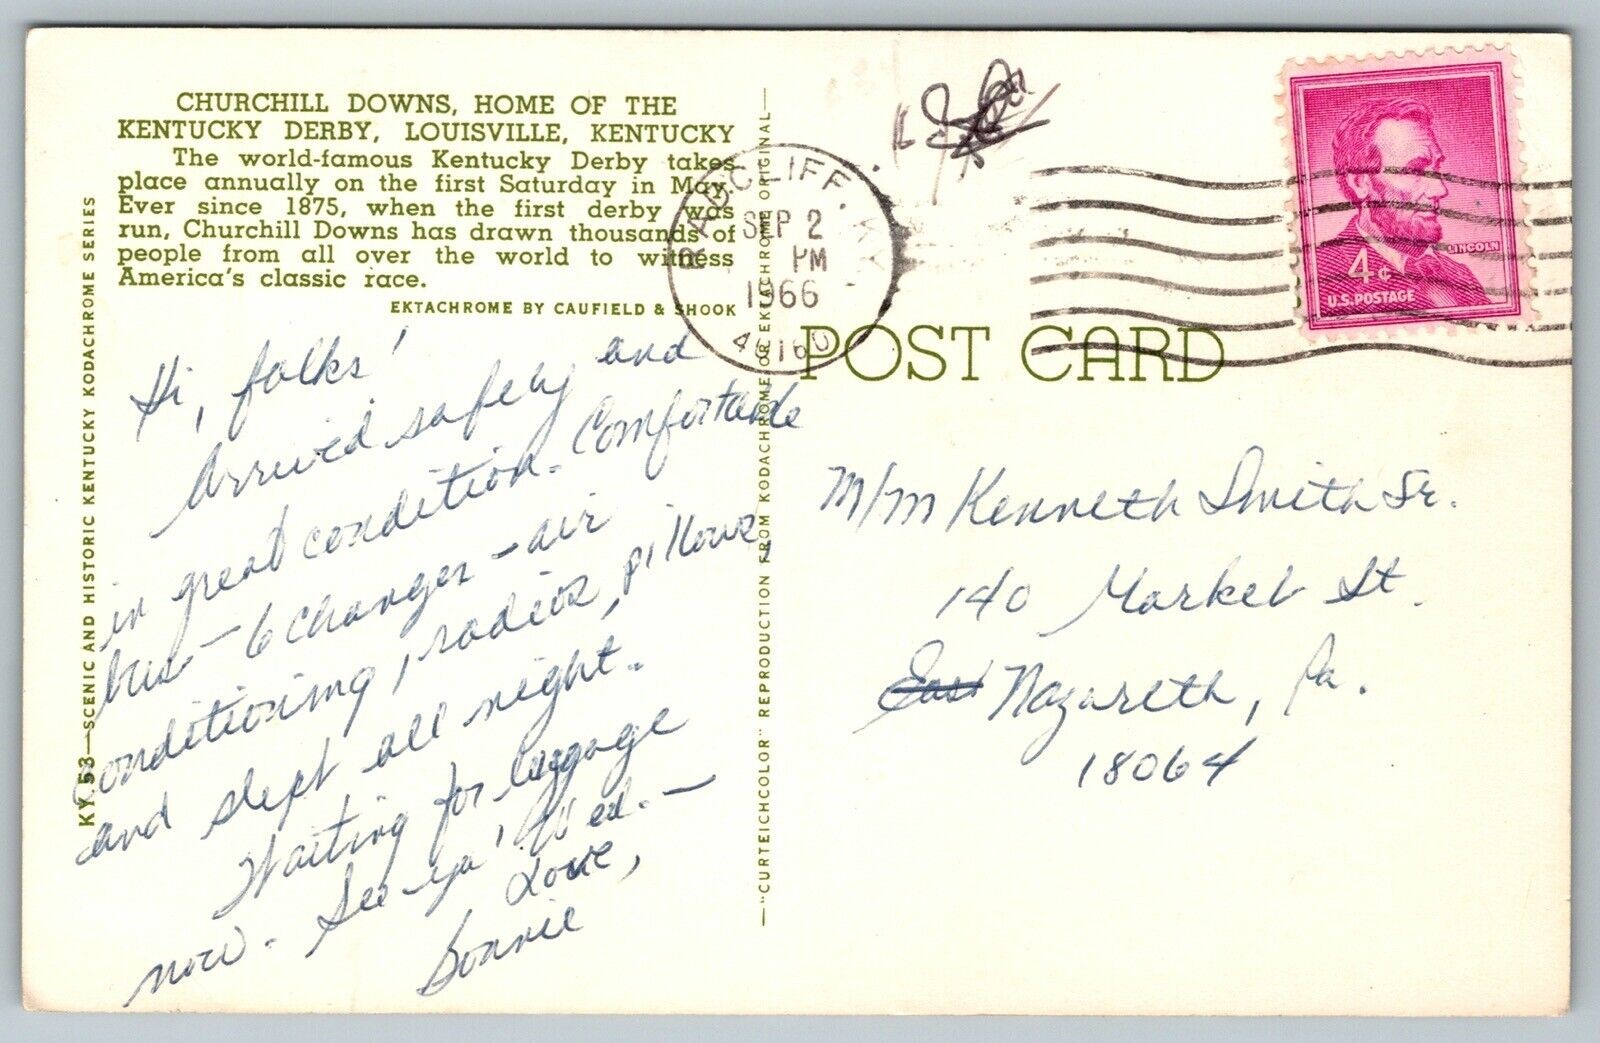 CHURCHILL DOWNS, HOME OF THE
KENTUCKY DERBY, LOUISVILLE, KENTUCKY
The world-famous Kentucky Derby takes
place annually on the first Saturday in May.
Ever since 1875, when the first derby was
run, Churchill Downs has drawn thousands of
people from all over the world to witness
America's classic race.
EKTACHROME BY CAUFIELD & SHOOK
KY.53—SCENIC AND HISTORIC KENTUCKY KODACHROME SERIES
Hi, folks!
Arrived safely and
in great condition. Comfortable
bus - 6 changes - air
conditioning, radios, pillows,
and slept all night.
Waiting for luggage
now. See ya' Wed. -
Love,
Bonnie
—"CURTEICHCOLOR" REPRODUCTION FROM KODACHROME OR EKTACHROME ORIGINAL—
RADCLIFF, KY.
SEP 2
PM
1966
40160
LINCOLN
4¢
U.S. POSTAGE
POST CARD
M/M Kenneth Smith Sr.
140 Market St.
East Nazareth, Pa.
18064